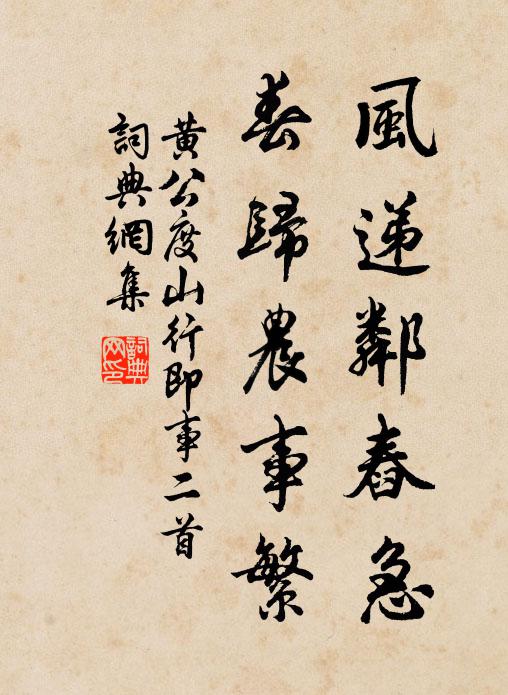 風遞鄰舂急
春歸農事繁
黃公度山行即事二首
詞典網集
詞典網印